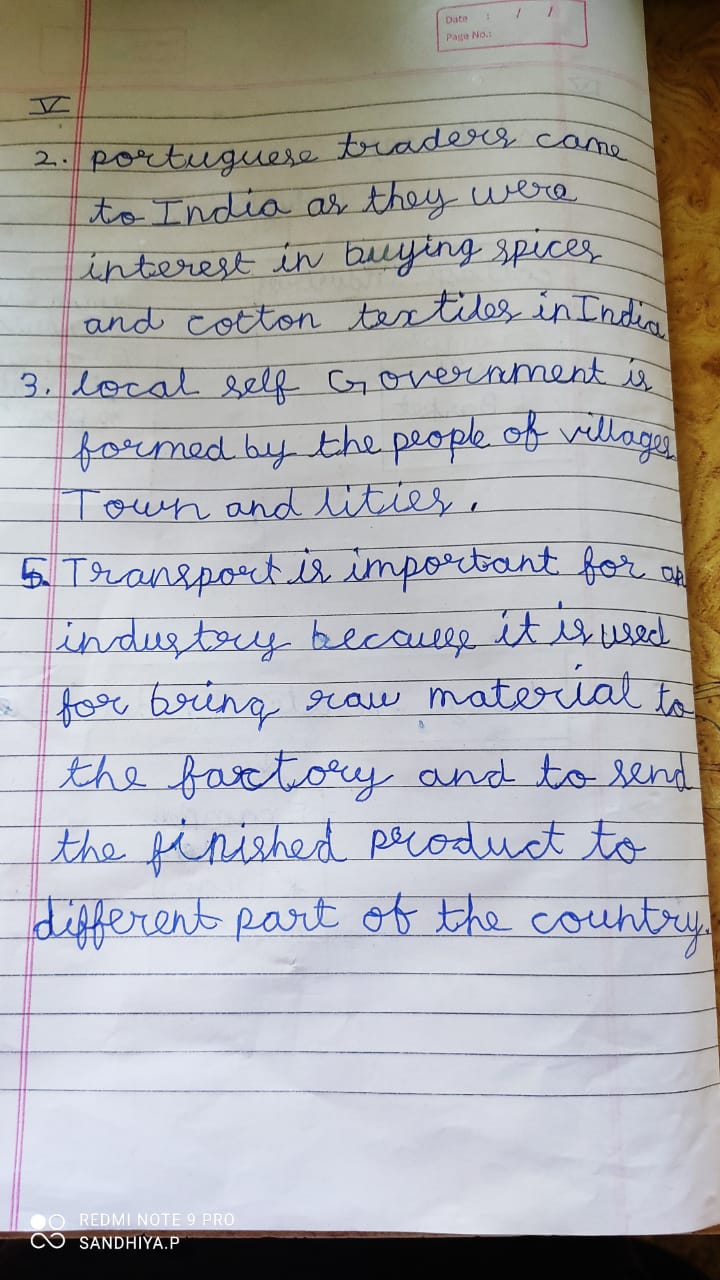 Date : / /
Page No.:
V
2. portuguese traders came
to India as they were
interest in buying spices
and cotton textiles in India
3. local self Government is
formed by the people of villages
Town and lities.
5. Transport is important for an
industry because it is used
for bring raw material to
the factory and to send
the finished product to
different part of the country.
REDMI NOTE 9 PRO
SANDHIYA.P